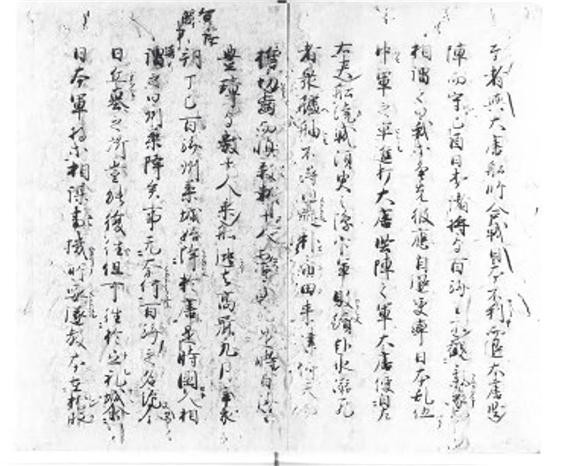 者與大唐船師合戰日本不利而退大唐堅
陣而守己酉日本諸將与百濟王不觀氣象
相謂之曰我等争先彼應自退更率日本乱伍
中軍之卒進打大唐堅陣之軍大唐便自左
右夾船繞戰須臾之際官軍敗績赴水溺死
者衆艫舳不得廻旋朴市田来津仰天
切齒而嗔殺數十人是時百濟
豊璋与數十人乘船逃去高麗九月辛亥
朔丁巳百濟州柔城始降於唐是時國人相
謂之曰州柔降矣事无奈何百濟之名絶今
日丘墓之所豈能復往但可往於弖礼城
日本軍將等相謀事機所要遂教本在枕服